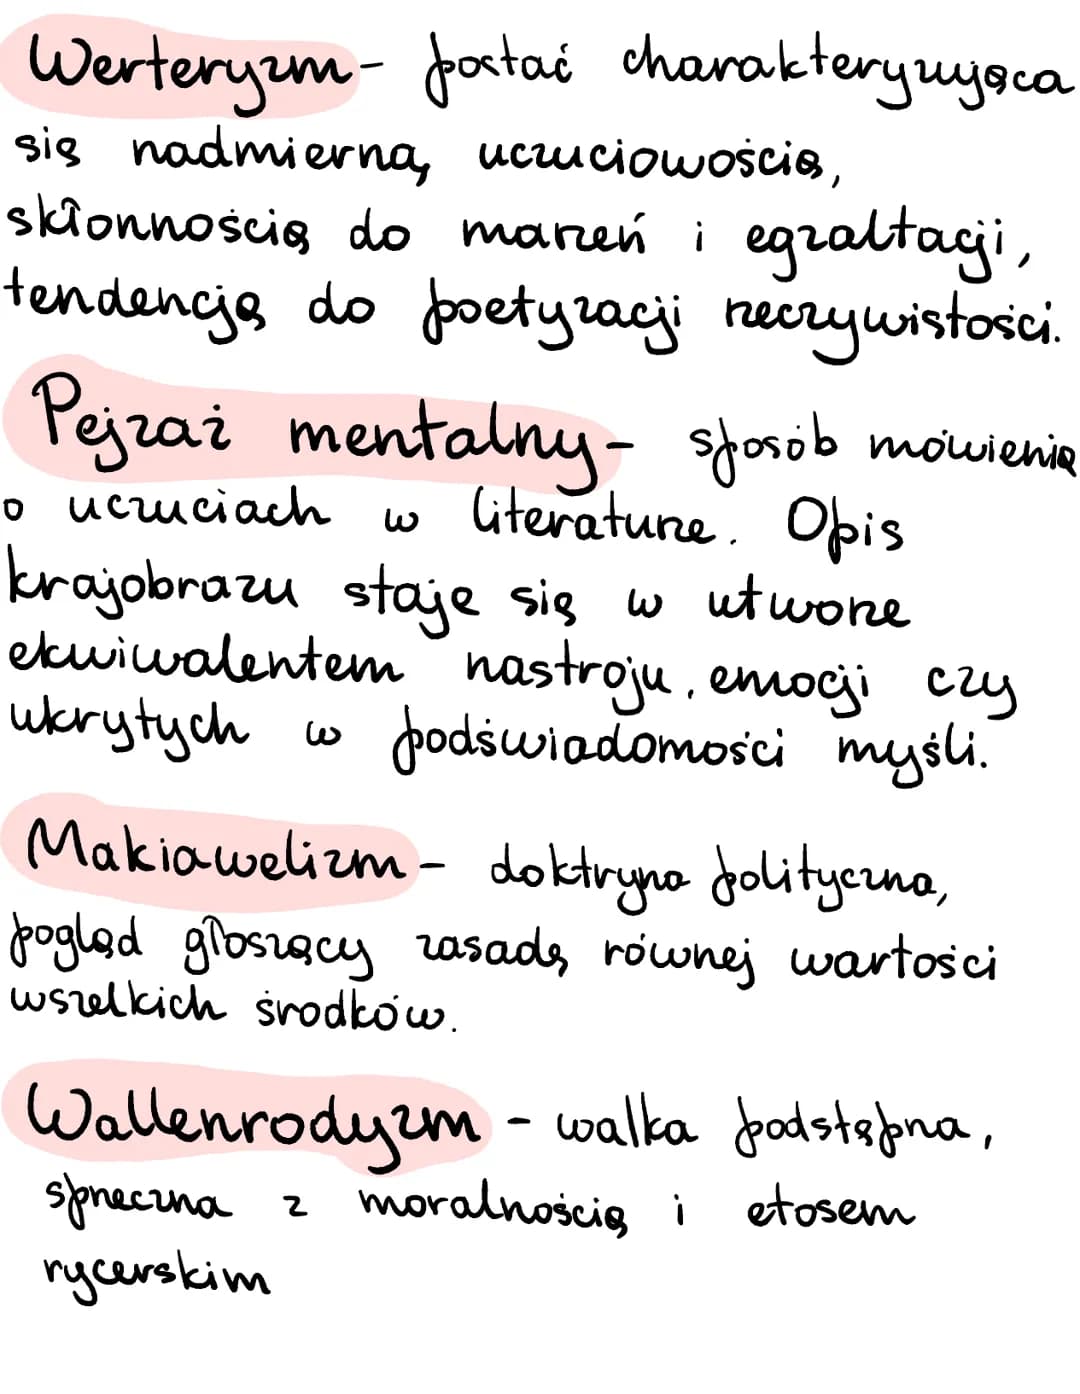 Werteryzm - postać charakteryzująca
się nadmierną uczuciowością,
skłonnością do marzeń i egzaltacji,
tendencją do poetyzacji rzeczywistości.
Pejzaż mentalny - sposób mówienia
o uczuciach w literaturze. Opis
krajobrazu staje się w utworze
ekwiwalentem nastroju, emocji czy
ukrytych w podświadomości myśli.
Makiawelizm - doktryna polityczna,
pogląd głoszący zasadę równej wartości
wszelkich środków.
Wallenrodyzm - walka podstępna,
sprzeczna z moralnością i etosem
rycerskim